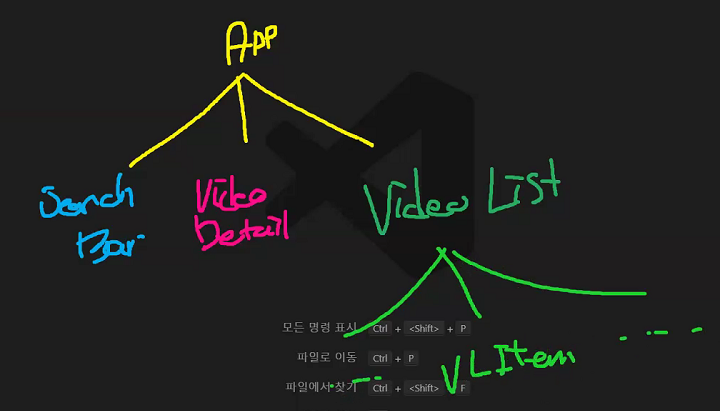 App
Search
Bar
Video
Detail
Video List
모든 명령 표시 Ctrl + <Shift> + P
파일로 이동 Ctrl + P
VLItem
파일에서 찾기 Ctrl + <Shift> F